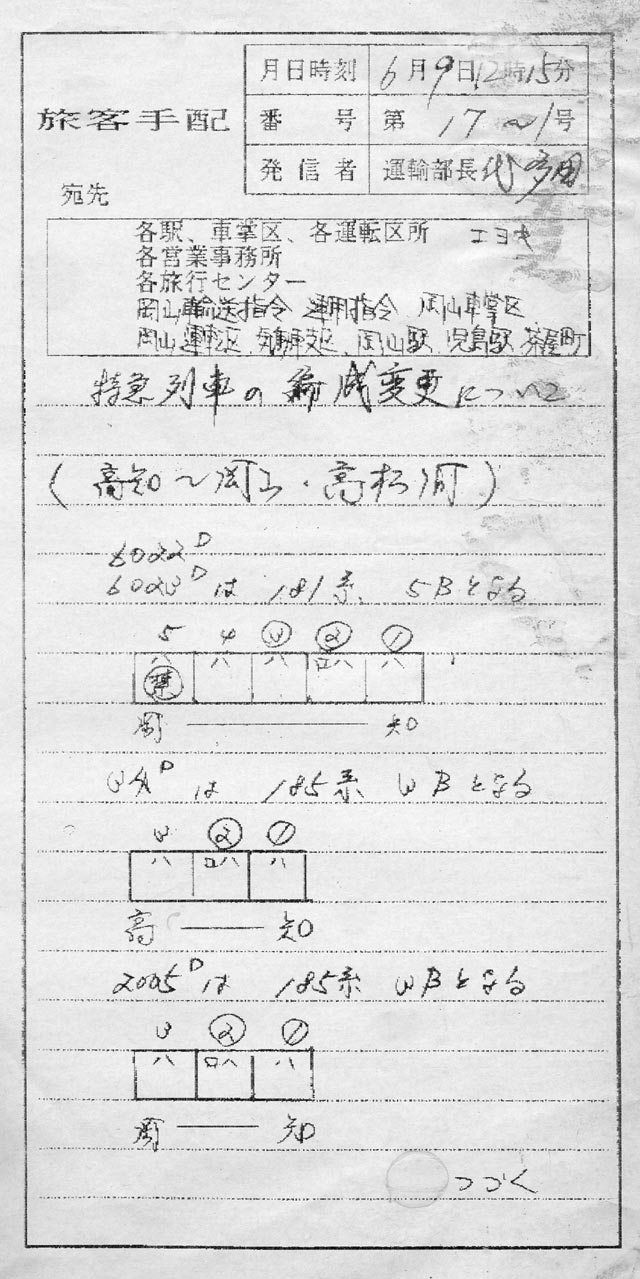 月日時刻 6月9日12時15分
旅客手配
番号 第17~1号
発信者 運輸部長 代 多田
宛先
各駅、車掌区、各運転区所 エヨキ
各営業事務所
各旅行センター
岡山輸送指令 運用指令 岡山車掌区
岡山運転区、気動車支区、岡山駅、児島駅、茶屋町
特急列車の編成変更について
(高知~岡山・高松間)
6022D
6023Dは 181系 5Bとなる
5 4 ③ ② ①
ハ ハ ハ ロハ ハ
岡 ―― 知
34Dは 185系 3Bとなる
3 ② ①
ハ ロハ ハ
高 ―― 知
2005Dは 185系 3Bとなる
3 ② ①
ハ ロハ ハ
岡 ―― 知
つづく